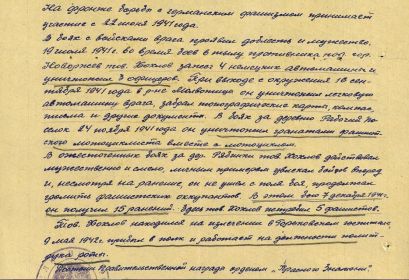 На фронте борьбы с германским фашизмом принимает
участие с 22 июня 1941 года.
В боях с войсками врага проявил доблесть и мужество.
19 июля 1941 г. во время боев в тылу противника под гор.
Новоржев тов. Хохлов зажег 4 немецких автомашины и
уничтожил 3 офицеров. При выходе с окружения 16 сен-
тября 1941 года в р-не он уничтожил легковую
автомашину врага, забрал топографические карты, компас,
письма и другие документы. В боях за деревню Рабочий По-
селок 24 ноября 1941 года он уничтожил гранатами фашист-
ского мотоциклиста вместе с мотоциклом.
В ожесточенных боях за дер. Рябинки тов Хохлов действовал
мужественно и смело, личным примером увлекая бойцов вперед
и, несмотря на ранение, он не ушел с поля боя, продолжая
громить фашистских оккупантов. В этом бою 7 декабря 1941 г.
он получил 15 ранений. Здесь тов Хохлов истребил 5 фашистов.
Тов. Хохлов находился на излечении в Горьковском госпитале
9 мая 1942 г. прибыл в полк и работает на должности полит-
рука роты.
Достоин Правительственной награды орденом „Красного Знамени"